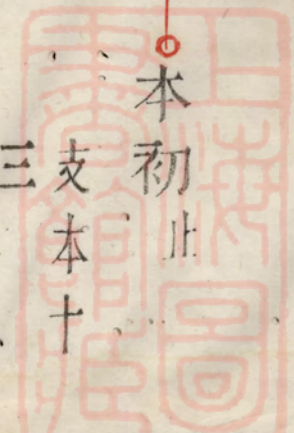 本初止
支本十
三